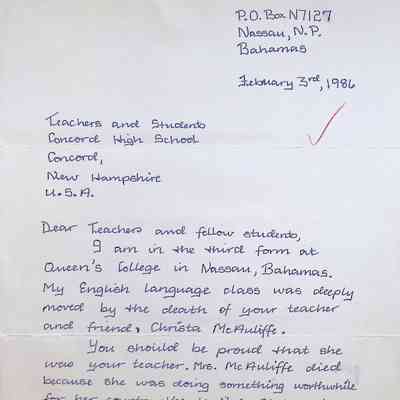 P.O. Box N7127
Nassau, N.P.
Bahamas
February 3rd, 1986
Teachers and Students
Concord High School
Concord,
New Hampshire
U.S.A.
Dear Teachers and fellow students,
I am in the third form at
Queen's College in Nassau, Bahamas.
My English language class was deeply
moved by the death of your teacher
and friend, Christa McAuliffe.
You should be proud that she
was your teacher. Mrs. McAuliffe died
because she was doing something worthwhile
for her